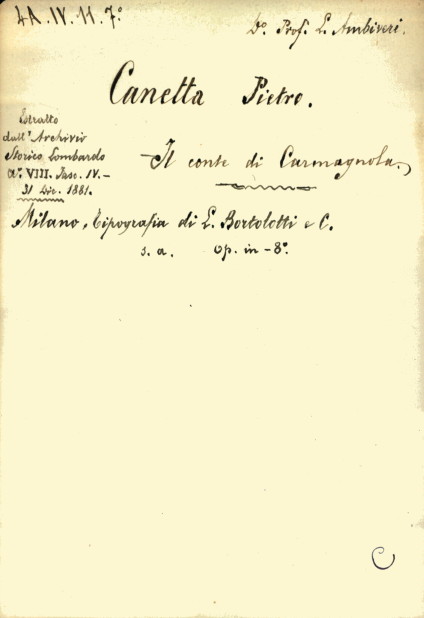 4A.IV.11.7º
Dº. Prof. L. Ambiveri.
Canetta Pietro.
Estratto
dall'Archivio
Storico Lombardo
aº. VIII. Fasc. IV.-
31 Dic. 1881.
Il conte di Carmagnola.
Milano, Tipografia di L. Bortolotti e C.
s. a. Op. in-8º.
C